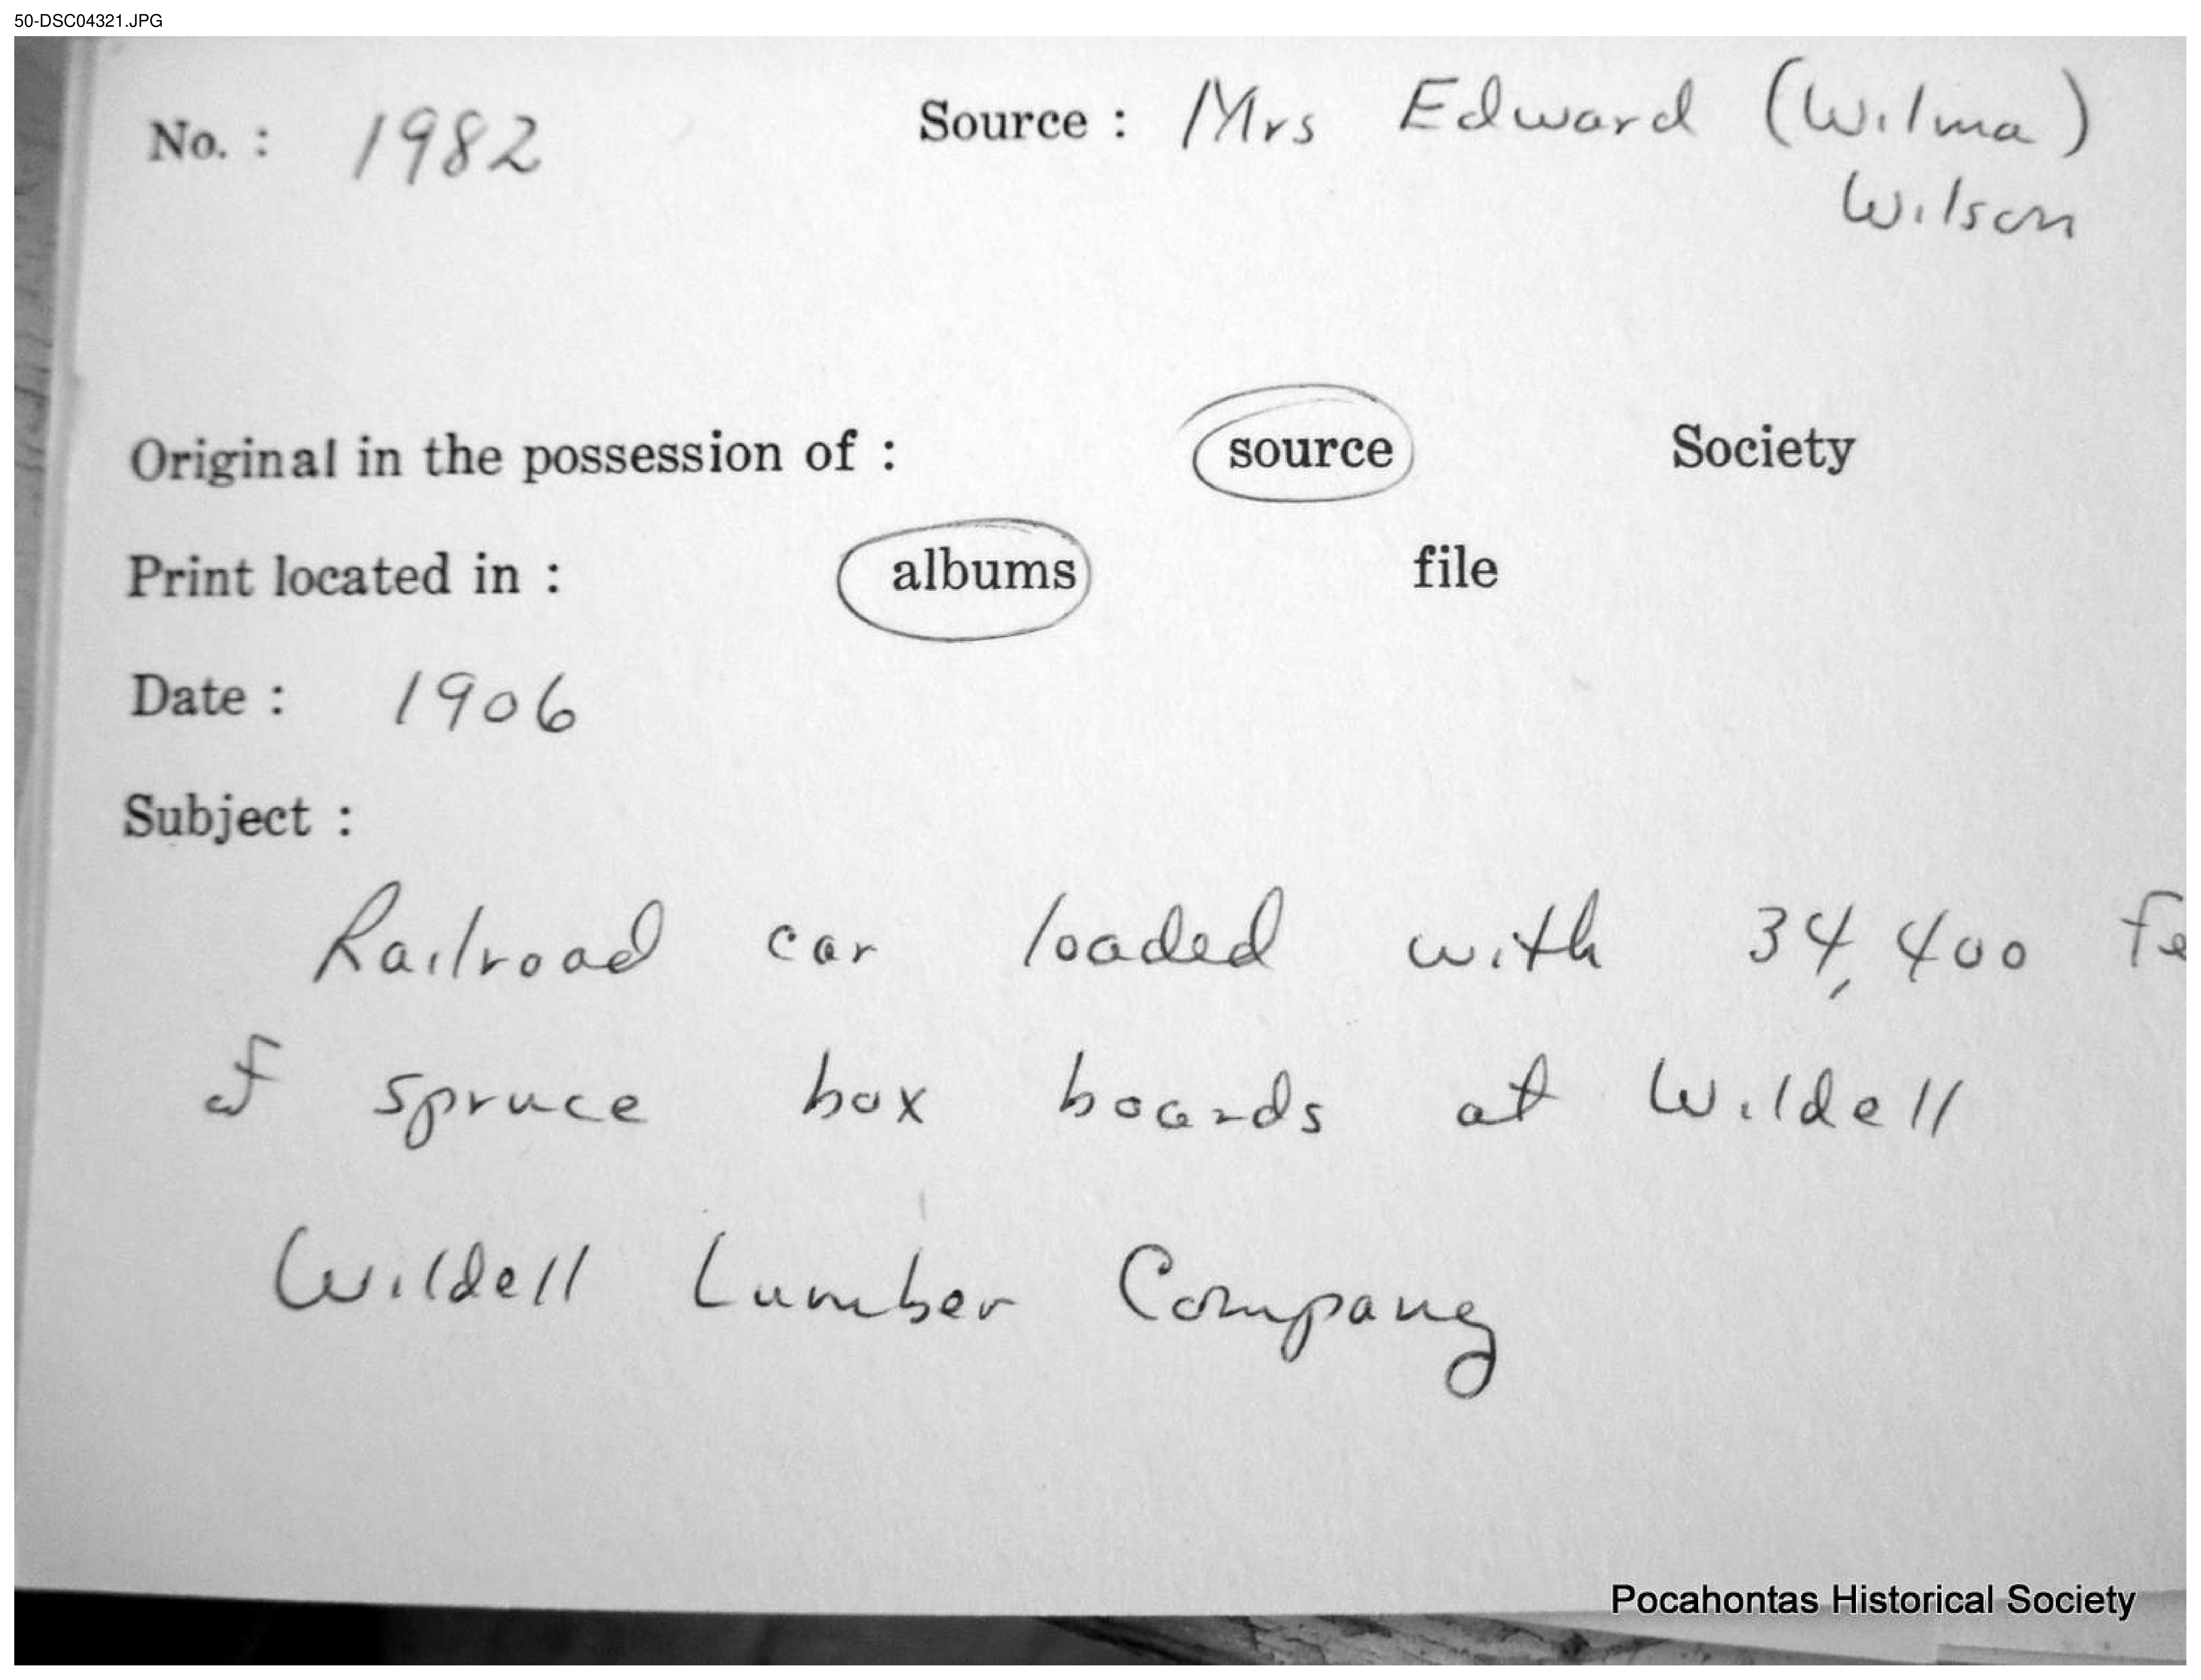 50-DSC04321.JPG
No. : 1982 Source : Mrs Edward (Wilma)
Wilson
Original in the possession of : source Society
Print located in : albums file
Date : 1906
Subject :
Railroad car loaded with 34,400 fe
of spruce box boards at Wildell
Wildell Lumber Company
Pocahontas Historical Society